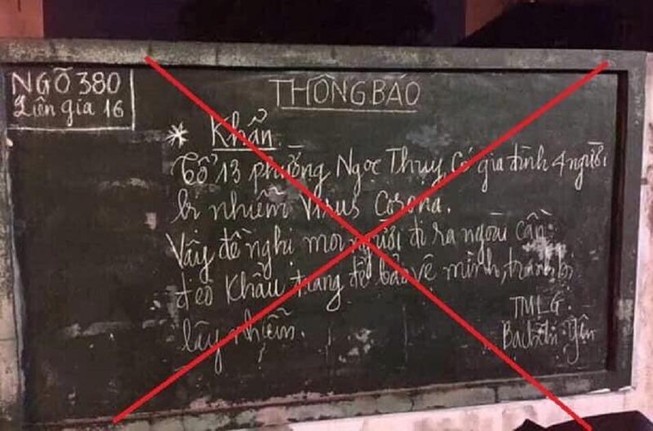 NGÕ 380
Liên gia 16
THÔNG BÁO
* Khẩn
Tổ 13 phường Ngọc Thụy Có gia đình 4 người
bị nhiễm Virus Corona.
Vậy đề nghị mọi người đi ra ngoài cần
đeo khẩu trang để bảo vệ mình, tránh bị
lây nhiễm.
TMLG
Yên